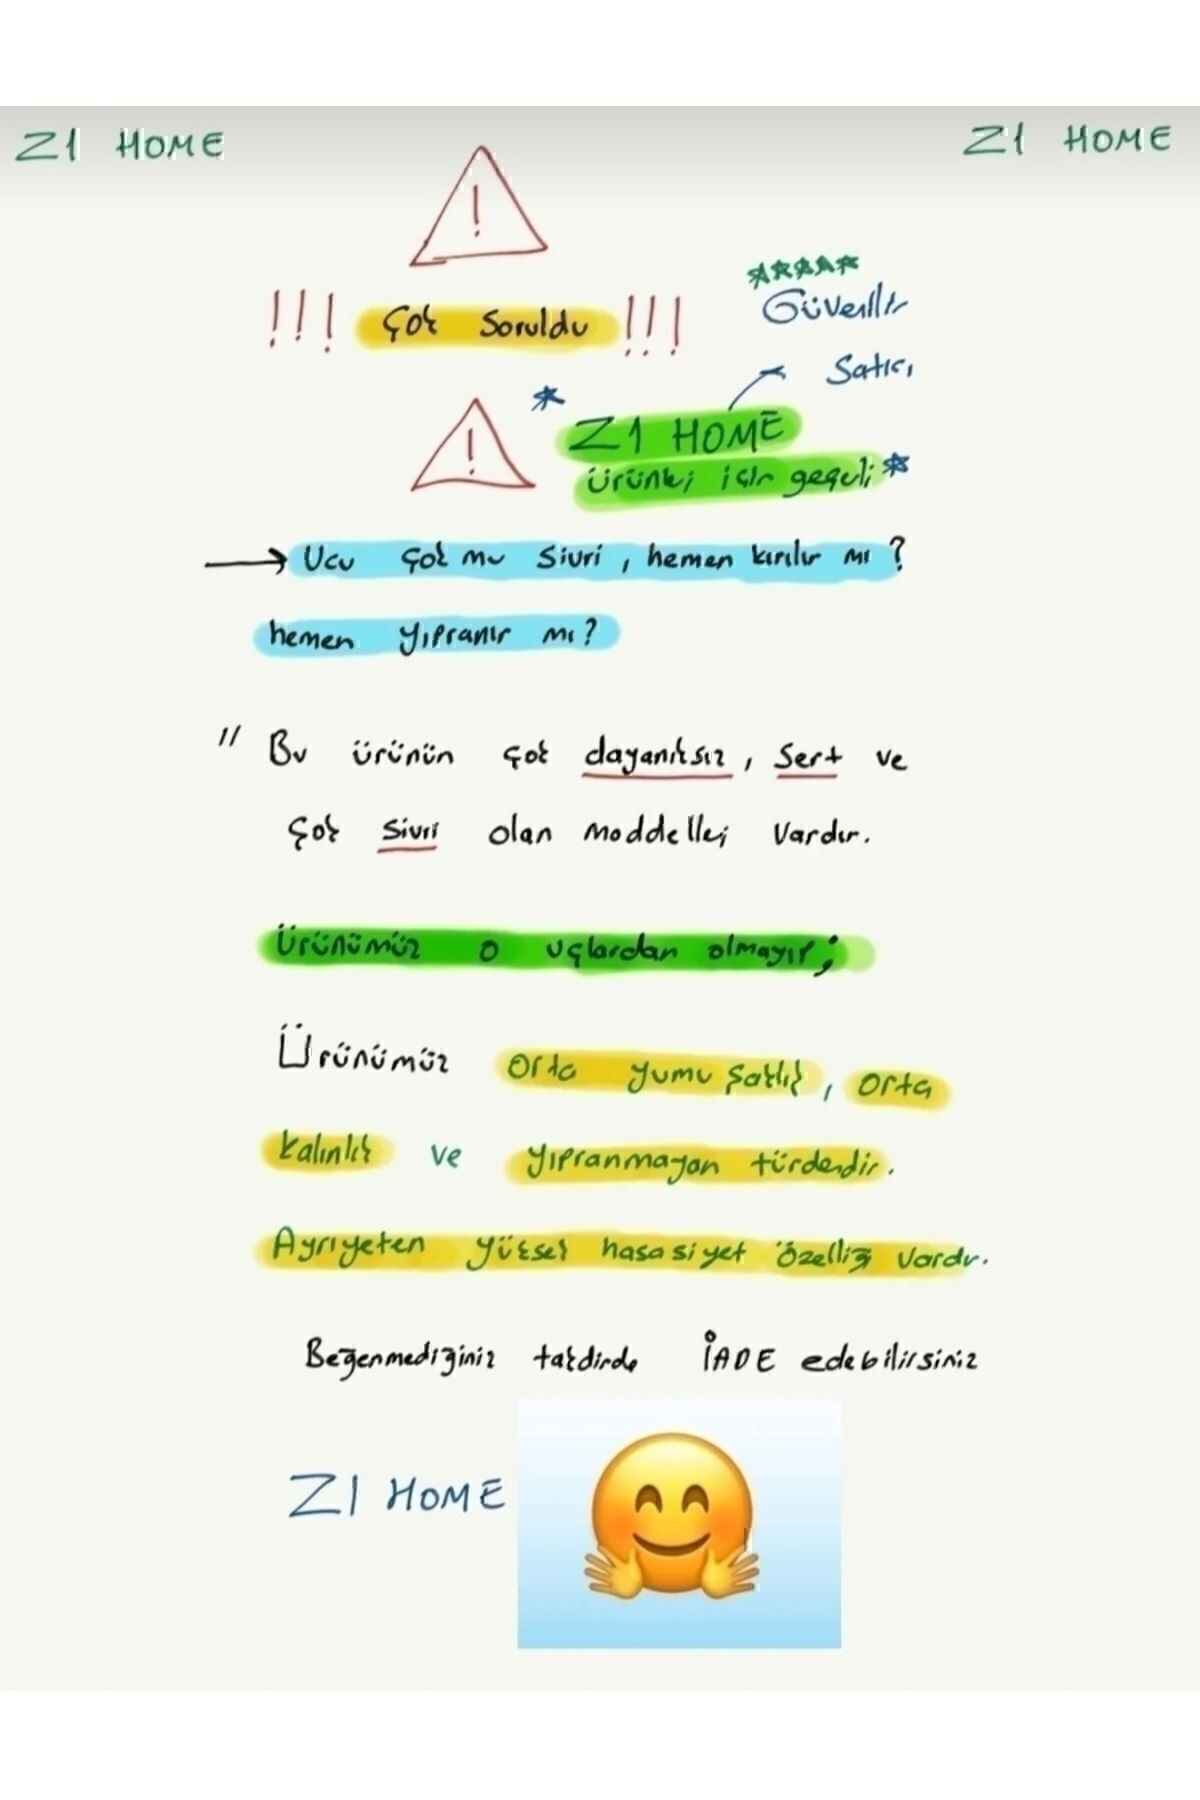 Z1 HOME
Z1 HOME
!
!!! Çok Soruldu !!!
Güvenilir
Satıcı
! * Z1 HOME
ürünleri için geçerli *
→ Ucu çok mu sivri, hemen kırılır mı?
hemen yıpranır mı?
" Bu ürünün çok dayanıksız, sert ve
çok sivri olan moddelleri vardır.
Ürünümüz o uçlardan olmayıp;
Ürünümüz orta yumuşaklık, orta
kalınlık ve yıpranmayan türdendir.
Ayrıyeten yüksek hasasiyet özelliği vardır.
Beğenmediğiniz takdirde İADE edebilirsiniz
Z1 HOME